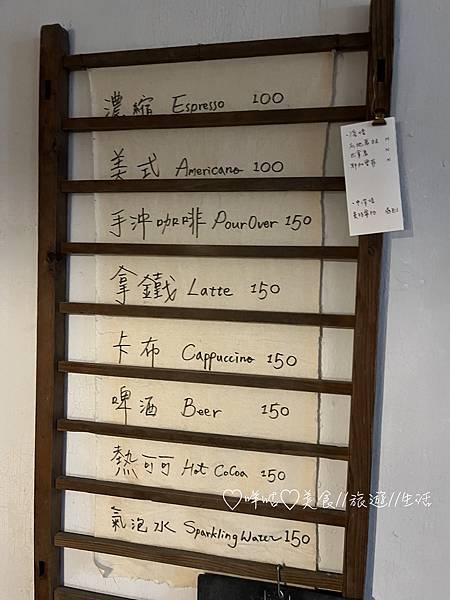 濃縮 Espresso 100
美式 Americano 100
手沖咖啡 PourOver 150
拿鐵 Latte 150
卡布 Cappuccino 150
啤酒 Beer 150
熱可可 Hot CoCoa 150
氣泡水 Sparkling Water 150
♡咩咕♡美食//旅遊//生活